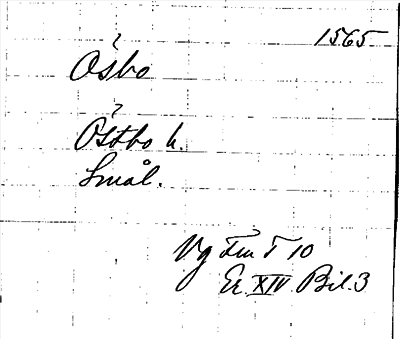 1565
Åsbo
Östbo h.
Smål.
Vg Tm I 10
Er. XIV Bil. 3